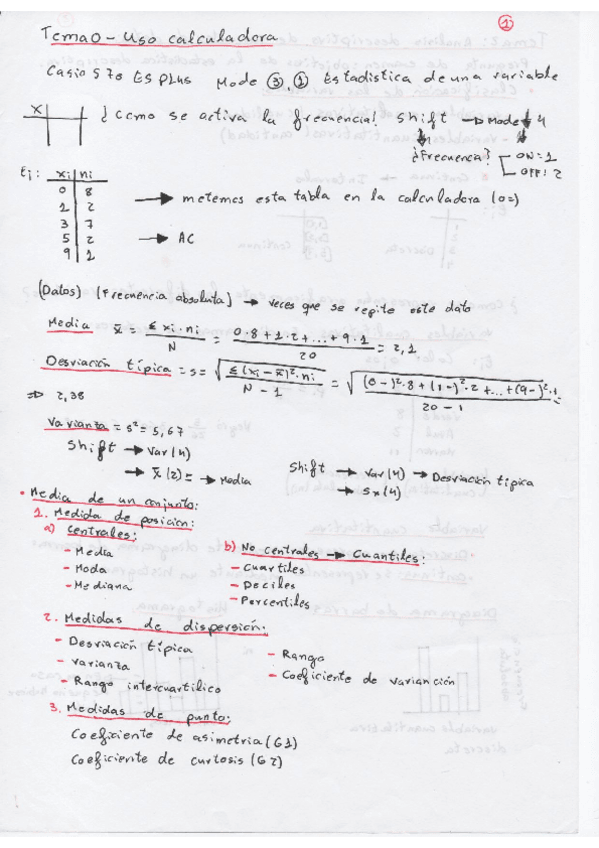 1
Tema 0 - Uso calculadora
Casio 570 ES PLUS Mode 3, 1 Estadistica de una variable
X
¿Como se activa la frecuencia? Shift → Mode ↓ 4
¿Frecuencia? ON = 1
OFF: 2
Ej: xi ni
0 8
1 2
3 7
5 2
9 1
→ metemos esta tabla en la calculadora (0=)
→ AC
(Datos) (Frecuencia absoluta) → veces que se repite este dato
Media x̄ = Σxi·ni / N = 0·8+1·2+...+9·1 / 20 = 2,1
Desviación típica = s = √(Σ(xi-x̄)²·ni / N-1) = √((0-)²·8+(1-)²·2+...+(9-)²·1 / 20-1
⇒ 2,38
Varianza = s² = 5,67
Shift → Var (4)
→ x̄ (2) = → Media
Shift → var (4) → Desviación típica
→ sx (4)
• Media de un conjunto:
1. Medida de posicion:
a) Centrales:
- Media
- Moda
- Mediana
b) No centrales → Cuantiles:
- Cuartiles
- Deciles
- Percentiles
2. Medidas de dispersión.
- Desviación típica
- varianza
- Rango intercuartilico
- Rango
- Coeficiente de variancion
3. Medidas de punto:
Coeficiente de asimetria (G1)
Coeficiente de curtosis (G2)